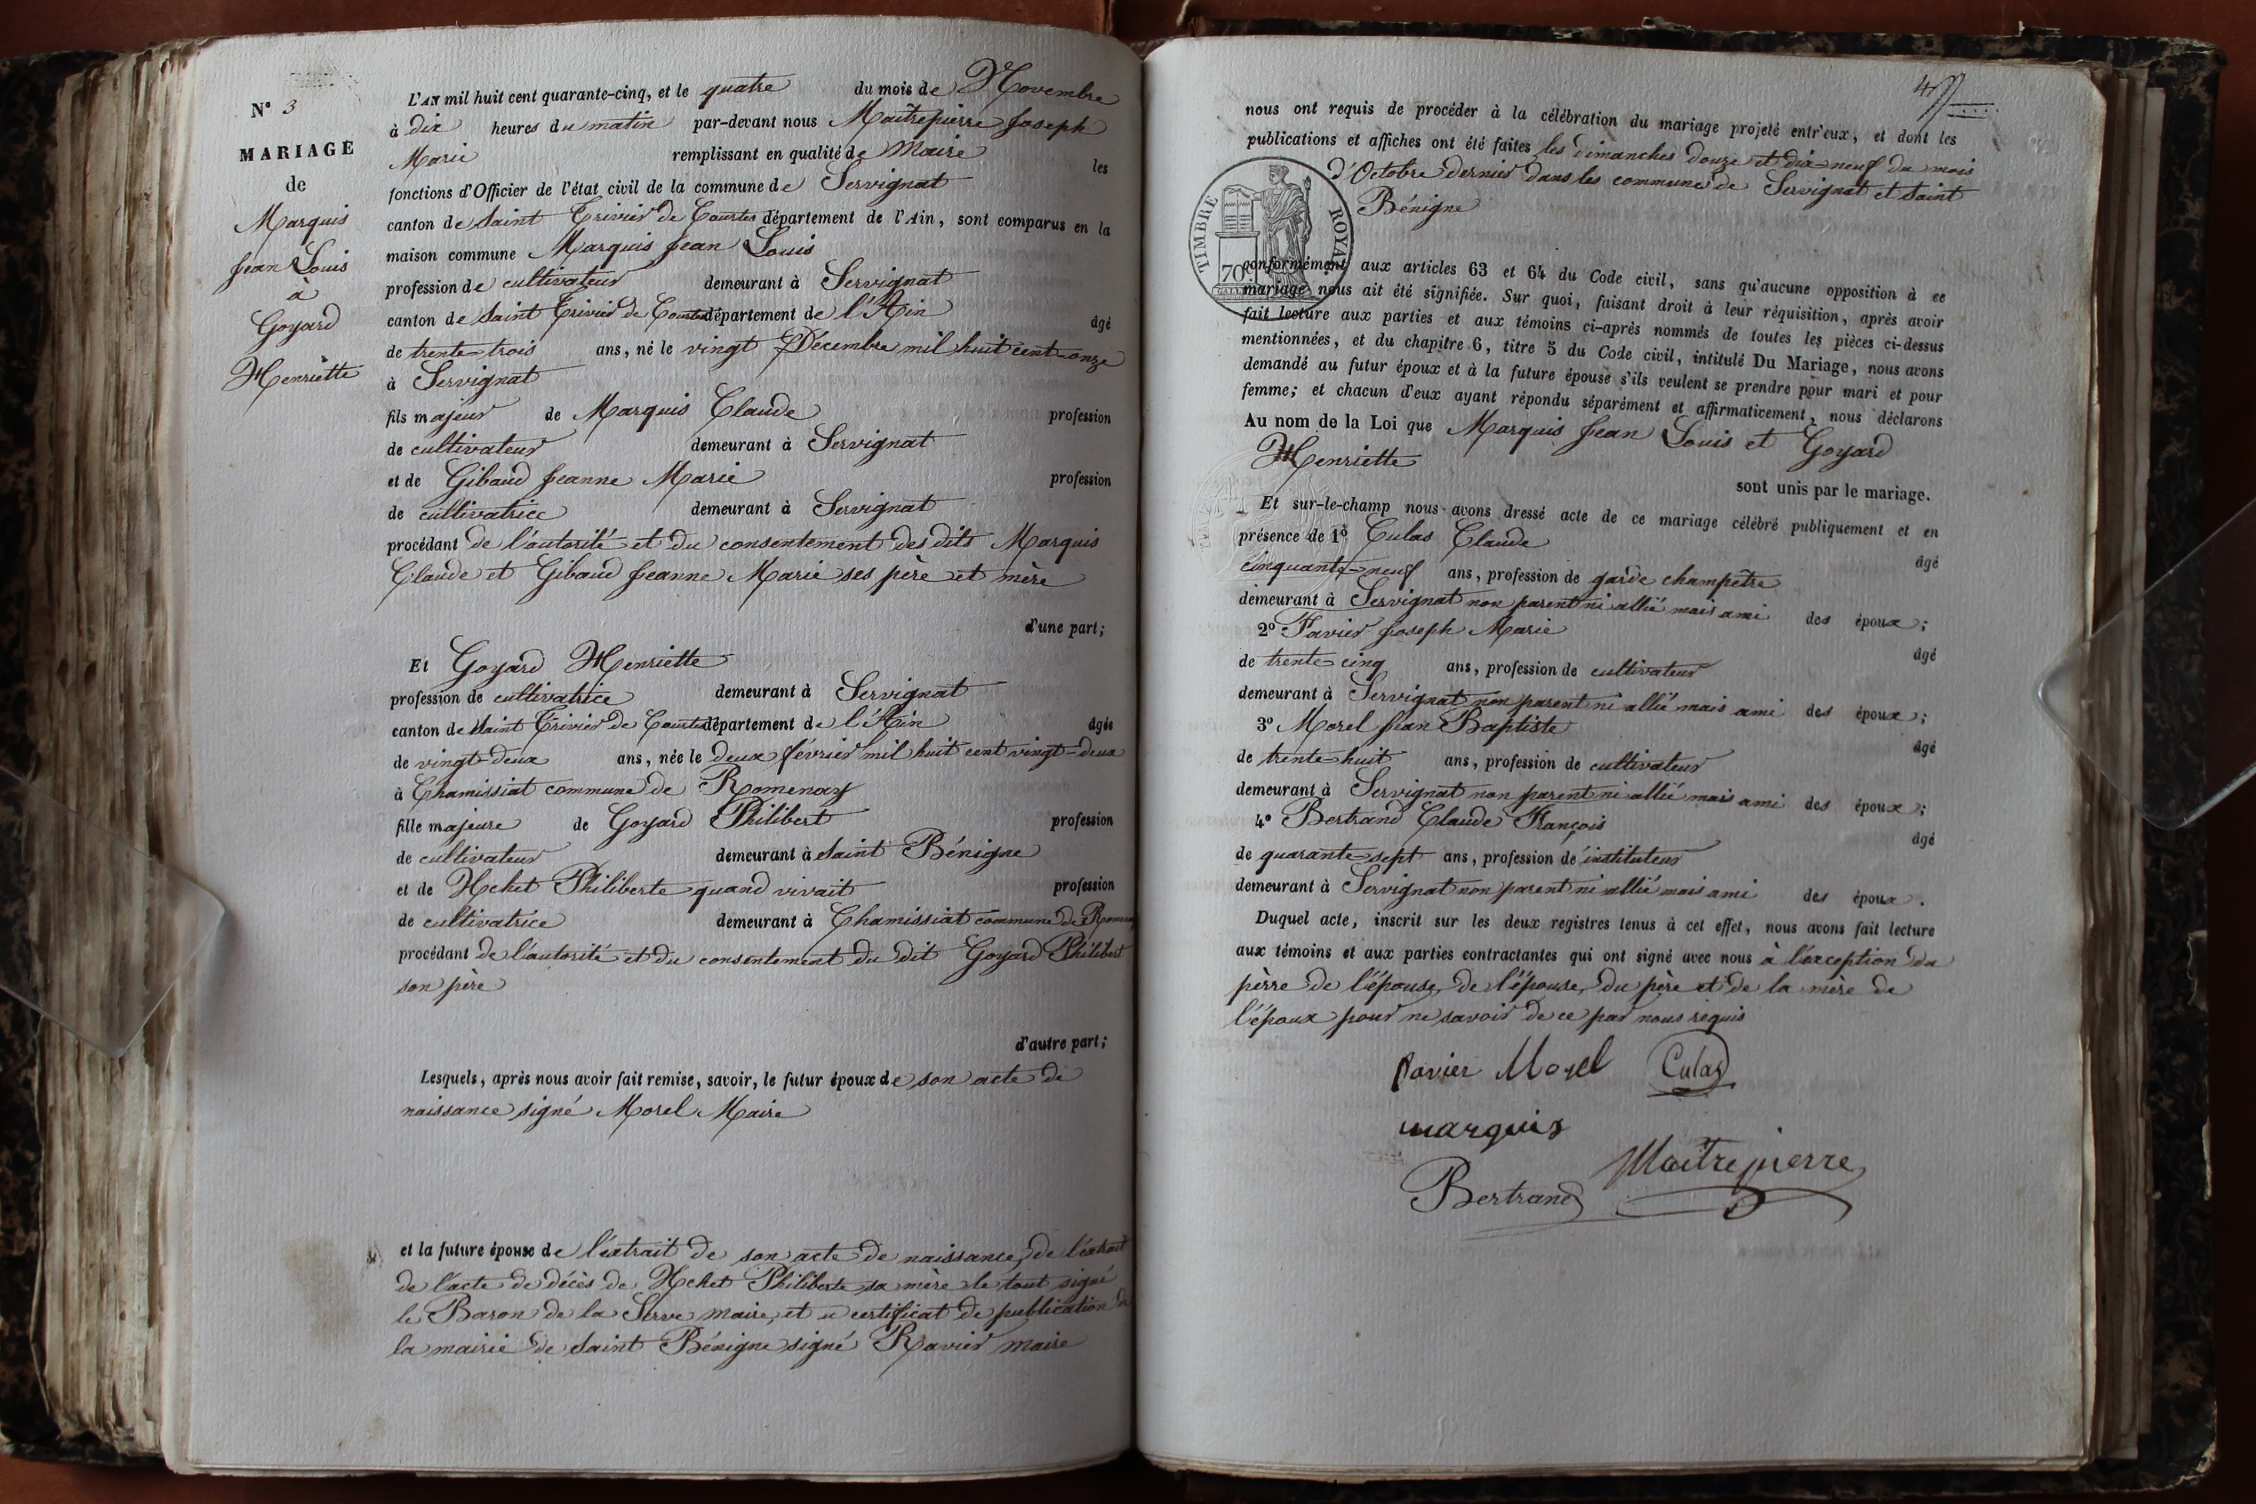 N° 3
MARIAGE
de
Marquis
Jean Louis
à
Goyard
Henriette
L'AN mil huit cent quarante-cinq, et le quatre du mois de Novembre
à dix heures du matin par-devant nous Maîtrepierre Joseph
Marie remplissant en qualité de Maire les
fonctions d'Officier de l'état civil de la commune de Servignat
canton de Saint Trivier de Courtes département de l'Ain, sont comparus en la
maison commune Marquis Jean Louis
profession de cultivateur demeurant à Servignat
canton de Saint Trivier de Courtes département de l'Ain âgé
de trente-trois ans, né le vingt Décembre mil huit cent onze
à Servignat
fils majeur de Marquis Claude profession
de cultivateur demeurant à Servignat
et de Gibaud Jeanne Marie profession
de cultivatrice demeurant à Servignat
procédant de l'autorité et du consentement des dits Marquis
Claude et Gibaud Jeanne Marie ses père et mère
d'une part;
Et Goyard Henriette
profession de cultivatrice demeurant à Servignat
canton de Saint Trivier de Courtes département de l'Ain âgée
de vingt-deux ans, née le deux février mil huit cent vingt-deux
à Chamissiat commune de Romenay
fille majeure de Goyard Philibert profession
de cultivateur demeurant à Saint Bénigne
et de Hchet Philiberte quand vivait profession
de cultivatrice demeurant à Chamissiat commune de Romenay
procédant de l'autorité et du consentement du dit Goyard Philibert
son père
d'autre part;
Lesquels, après nous avoir fait remise, savoir, le futur époux de son acte de
naissance signé Morel Maire
et la future épouse de l'extrait de son acte de naissance, de l'extrait
de l'acte de décès de Hchet Philiberte sa mère le tout signé
le Baron de la Serve maire, et u certificat de publication de
la mairie de Saint Bénigne signé Ravier maire
4
nous ont requis de procéder à la célébration du mariage projeté entr'eux, et dont les
publications et affiches ont été faites les dimanches douze et dix-neuf du mois
d'Octobre dernier dans les commune de Servignat et Saint
Bénigne
TIMBRE ROYAL
70
conformément aux articles 63 et 64 du Code civil, sans qu'aucune opposition à ce
mariage nous ait été signifiée. Sur quoi, faisant droit à leur réquisition, après avoir
fait lecture aux parties et aux témoins ci-après nommés de toutes les pièces ci-dessus
mentionnées, et du chapitre 6, titre 5 du Code civil, intitulé Du Mariage, nous avons
demandé au futur époux et à la future épouse s'ils veulent se prendre pour mari et pour
femme; et chacun d'eux ayant répondu séparément et affirmativement, nous déclarons
Au nom de la Loi que Marquis Jean Louis et Goyard
Henriette
sont unis par le mariage.
Et sur-le-champ nous avons dressé acte de ce mariage célébré publiquement et en
présence de 1° Culas Claude âgé
cinquante-neuf ans, profession de garde champêtre
demeurant à Servignat non parent ni allié mais ami des époux;
2° Favier Joseph Marie âgé
de trente cinq ans, profession de cultivateur
demeurant à Servignat non parent ni allié mais ami des époux;
3° Morel Jean Baptiste âgé
de trente-huit ans, profession de cultivateur
demeurant à Servignat non parent ni allié mais ami des époux;
4° Bertrand Claude François âgé
de quarante-sept ans, profession de instituteur
demeurant à Servignat non parent ni allié mais ami des époux.
Duquel acte, inscrit sur les deux registres tenus à cet effet, nous avons fait lecture
aux témoins et aux parties contractantes qui ont signé avec nous à l'exception du
pèrre de l'épouse, de l'épouse, du père et de la mère de
l'époux pour ne savoir de ce par nous requis
favier Morel Culas
marquis
Maitrepierre
Bertrand